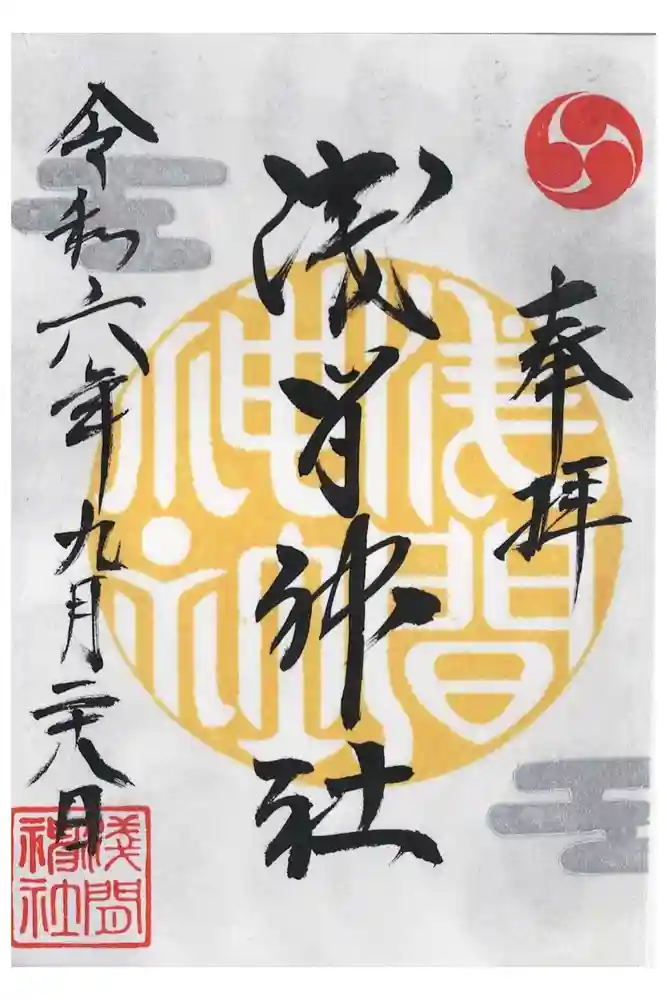 奉拝
浅間神社
令和六年九月二十八日
浅間神社
淺間神社